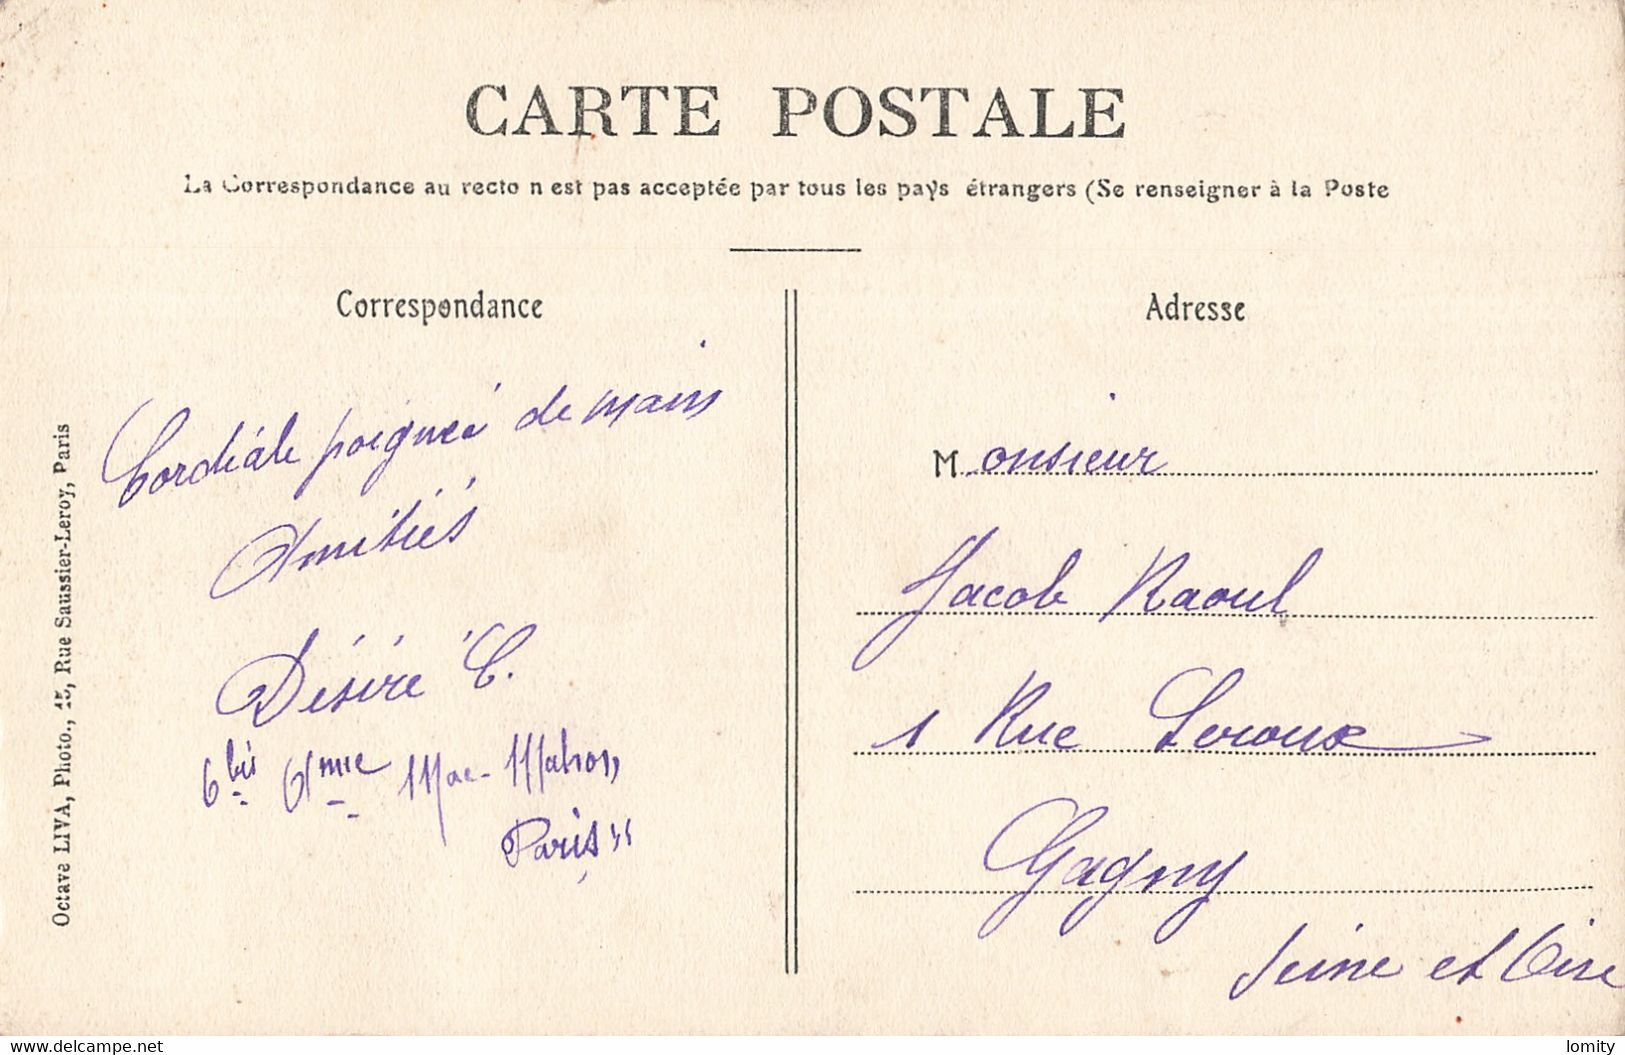 CARTE POSTALE
La Correspondance au recto n est pas acceptée par tous les pays étrangers (Se renseigner à la Poste
Correspondance
Cordiale poignée de mains
Amitiés
Désiré C.
6 bis Avnue Mac-Mahon,
Paris
Octave LIVA, Photo., 15, Rue Saussier-Leroy, Paris
Adresse
Monsieur
Jacob Raoul
1 Rue Leroux
Gagny
Seine et Oise
www.delcampe.net
lomity